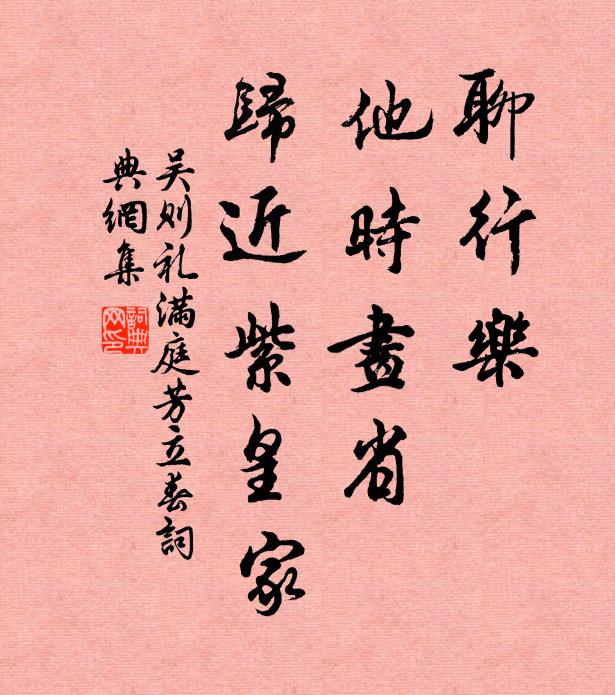 聊行樂
他時畫省
歸近紫皇家
吴则礼滿庭芳立春詞
典網集
詞典网印